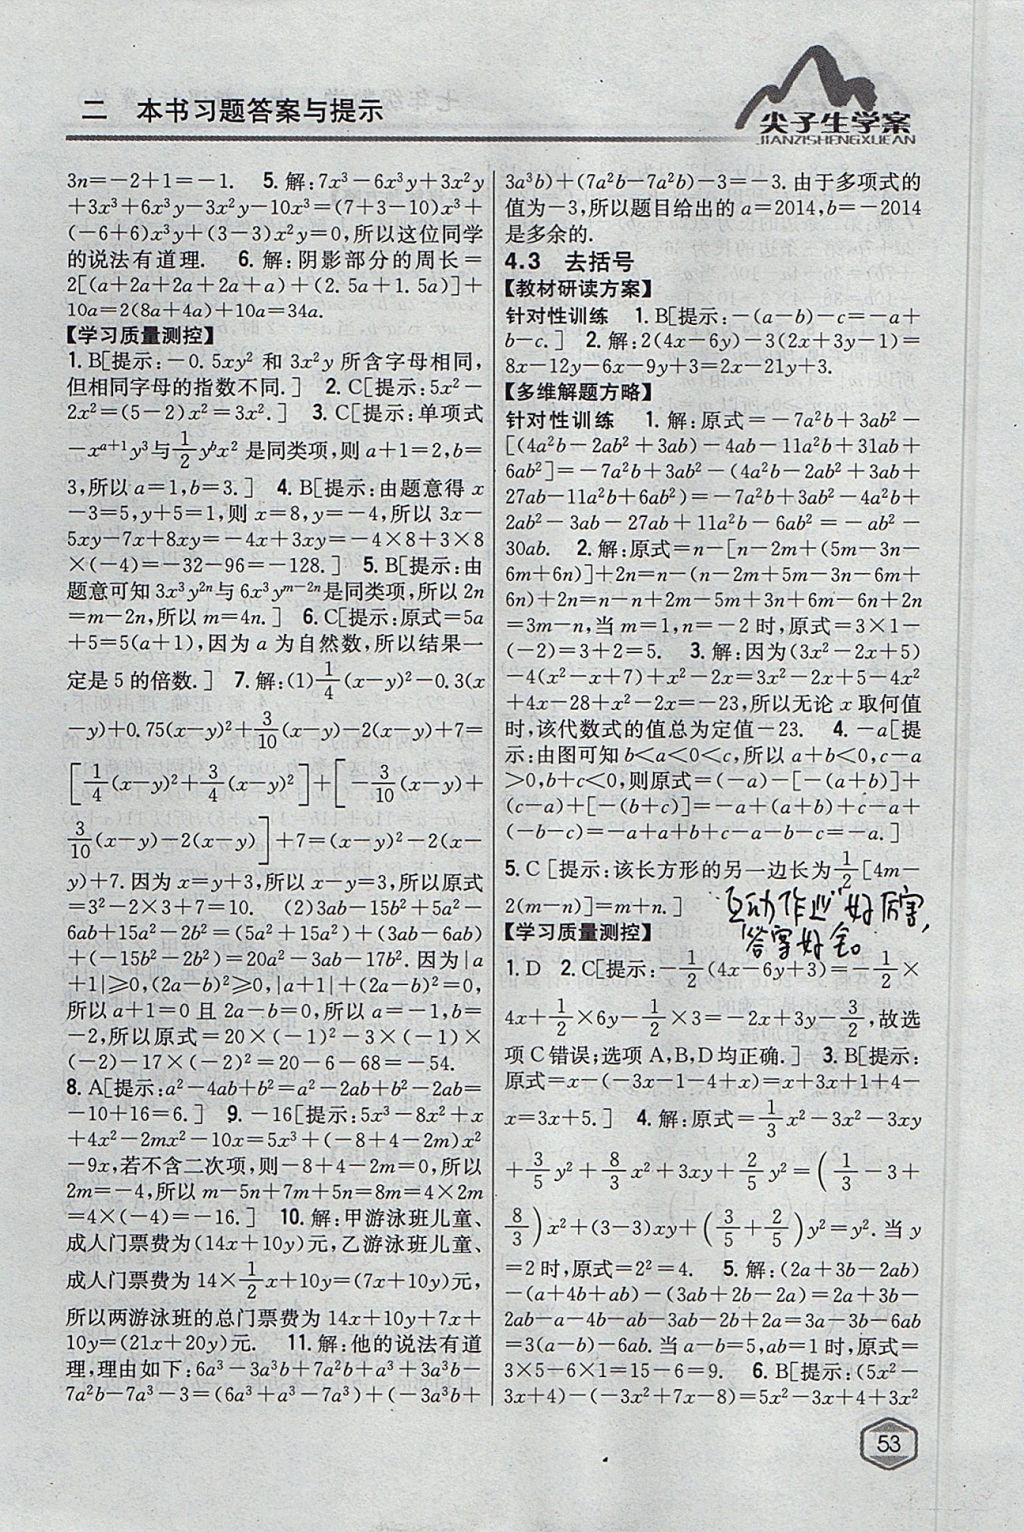 二 本书习题答案与提示
尖子生学案
JIANZISHENGXUEAN
3n=-2+1=-1. 5.解:7x³-6x³y+3x²y
+3x³+6x³y-3x²y-10x³=(7+3-10)x³+
(-6+6)x³y+(3-3)x²y=0,所以这位同学
的说法有道理. 6.解:阴影部分的周长=
2[(a+2a+2a+2a+a)+(2.5a+1.5a)]+
10a=2(8a+4a)+10a=34a.
【学习质量测控】
1.B[提示:-0.5xy² 和 3x²y 所含字母相同,
但相同字母的指数不同.] 2.C[提示:5x²-
2x²=(5-2)x²=3x².] 3.C[提示:单项式
-xᵃ⁺¹y³与1/2 yᵇx² 是同类项,则 a+1=2,b=
3,所以 a=1,b=3.] 4.B[提示:由题意得 x
-3=5,y+5=1,则 x=8,y=-4,所以 3x-
5xy-7x+8xy=-4x+3xy=-4×8+3×8
×(-4)=-32-96=-128.] 5.B[提示:由
题意可知 3x³y²ⁿ与 6x³yᵐ⁻²ⁿ是同类项,所以 2n
=m-2n,所以 m=4n.] 6.C[提示:原式=5a
+5=5(a+1),因为 a 为自然数,所以结果一
定是 5 的倍数.] 7.解:(1)1/4(x-y)²-0.3(x
-y)+0.75(x-y)²+3/10(x-y)-2(x-y)+7=
[1/4(x-y)²+3/4(x-y)²]+[-3/10(x-y)+
3/10(x-y)-2(x-y)]+7=(x-y)²-2(x-
y)+7.因为 x=y+3,所以 x-y=3,所以原式
=3²-2×3+7=10. (2)3ab-15b²+5a²-
6ab+15a²-2b²=(5a²+15a²)+(3ab-6ab)
+(-15b²-2b²)=20a²-3ab-17b².因为|a
+1|≥0,(2a-b)²≥0,|a+1|+(2a-b)²=0,
所以 a+1=0 且 2a-b=0,所以 a=-1,b=
-2,所以原式=20×(-1)²-3×(-1)×
(-2)-17×(-2)²=20-6-68=-54.
8.A[提示:a²-4ab+b²=a²-2ab+b²-2ab=
-10+16=6.] 9.-16[提示:5x³-8x²+x
+4x²-2mx²-10x=5x³+(-8+4-2m)x²
-9x,若不含二次项,则-8+4-2m=0,所以
2m=-4,所以 m-5n+7m+5n=8m=4×2m
=4×(-4)=-16.] 10.解:甲游泳班儿童、
成人门票费为(14x+10y)元,乙游泳班儿童、
成人门票费为 14×1/2x+10y=(7x+10y)元,
所以两游泳班的总门票费为 14x+10y+7x+
10y=(21x+20y)元. 11.解:他的说法有道
理,理由如下:6a³-3a³b+7a²b+a³+3a³b-
7a²b-7a³-3=(6a³+a³-7a³)+(-3a³b+
3a³b)+(7a²b-7a²b)-3=-3.由于多项式的
值为-3,所以题目给出的 a=2014,b=-2014
是多余的.
4.3 去括号
【教材研读方案】
针对性训练 1.B[提示:-(a-b)-c=-a+
b-c.] 2.解:2(4x-6y)-3(2x+3y-1)=
8x-12y-6x-9y+3=2x-21y+3.
【多维解题方略】
针对性训练 1.解:原式=-7a²b+3ab²-
[(4a²b-2ab²+3ab)-4ab-11a²b+31ab+
6ab²]=-7a²b+3ab²-(4a²b-2ab²+3ab+
27ab-11a²b+6ab²)=-7a²b+3ab²-4a²b+
2ab²-3ab-27ab+11a²b-6ab²=-ab²-
30ab. 2.解:原式=n-[n-2m+(5m-3n-
6m+6n)]+2n=n-(n-2m+5m-3n-6m+
6n)+2n=n-n+2m-5m+3n+6m-6n+2n
=3m-n,当 m=1,n=-2 时,原式=3×1-
(-2)=3+2=5. 3.解:因为(3x²-2x+5)
-4(x²-x+7)+x²-2x=3x²-2x+5-4x²
+4x-28+x²-2x=-23,所以无论 x 取何值
时,该代数式的值总为定值-23. 4.-a[提
示:由图可知 b<a<0<c,所以 a+b<0,c-a
>0,b+c<0,则原式=(-a)-[-(a+b)]+
(c-a)+[-(b+c)]=-a+(a+b)+c-a+
(-b-c)=-a+a+b+c-a-b-c=-a.]
5.C[提示:该长方形的另一边长为1/2[4m-
2(m-n)]=m+n.]
互动作业“好厉害,
答案好全。
【学习质量测控】
1.D 2.C[提示:-1/2(4x-6y+3)=-1/2×
4x+1/2×6y-1/2×3=-2x+3y-3/2,故选
项 C 错误;选项 A,B,D 均正确.] 3.B[提示:
原式=x-(-3x-1-4+x)=x+3x+1+4-
x=3x+5.] 4.解:原式=1/3x²-3x²-3xy
+3/5y²+8/3x²+3xy+2/5y²=(1/3-3+
8/3)x²+(3-3)xy+(3/5+2/5)y²=y².当 y
=2 时,原式=2²=4. 5.解:(2a+3b-2ab)
-(a+4b+ab)-(3ab+2b-2a)=2a+3b-
2ab-a-4b-ab-3ab-2b+2a=3a-3b-6ab
=3(a-b)-6ab.当 a-b=5,ab=1 时,原式=
3×5-6×1=15-6=9. 6.B[提示:(5x²-
3x+4)-(-3x²+7x-8)=5x²-3x+4+3x²
53